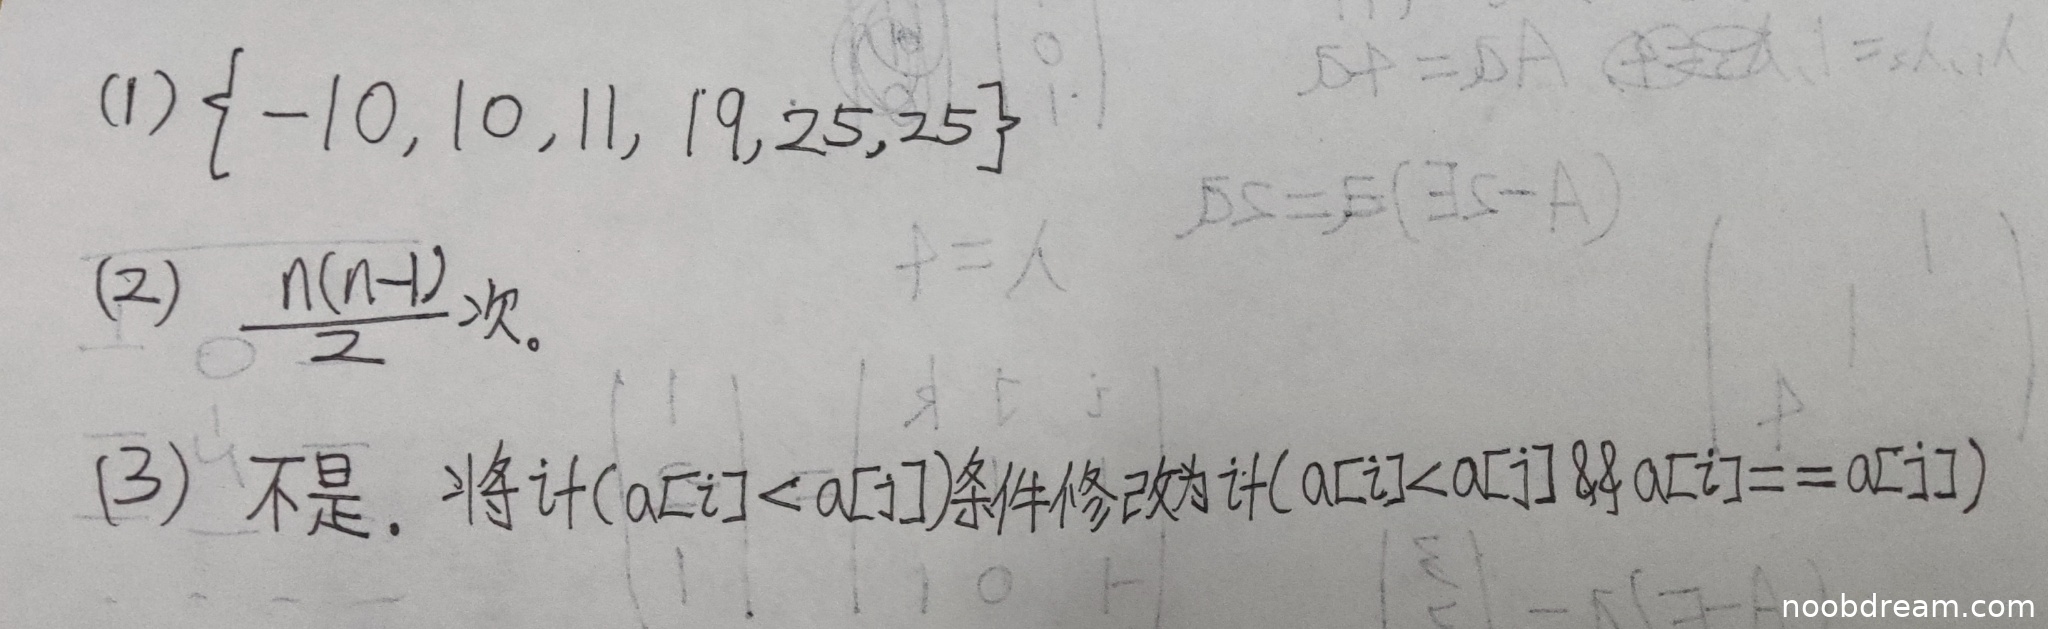 (1) {-10, 10, 11, 19, 25, 25}
(2) n(n-1)/2 次。
(3) 不是. 将 if(a[i]<a[j])条件修改为 if(a[i]<a[j] && a[i]==a[j])
noobdream.com